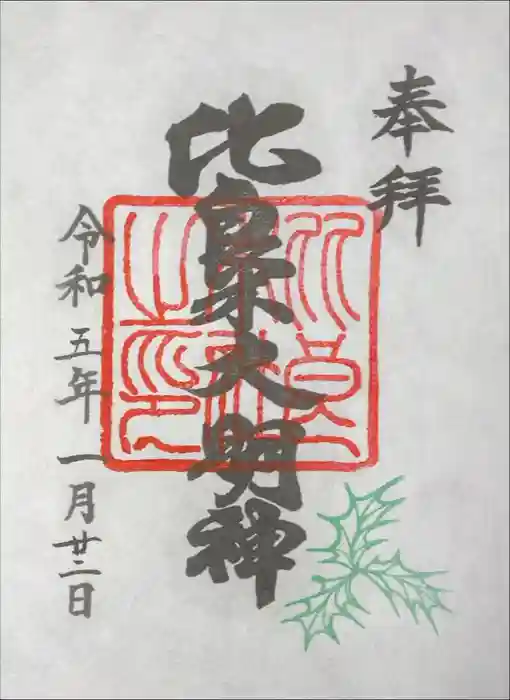 奉拝
比良木大明神
令和五年一月廿二日